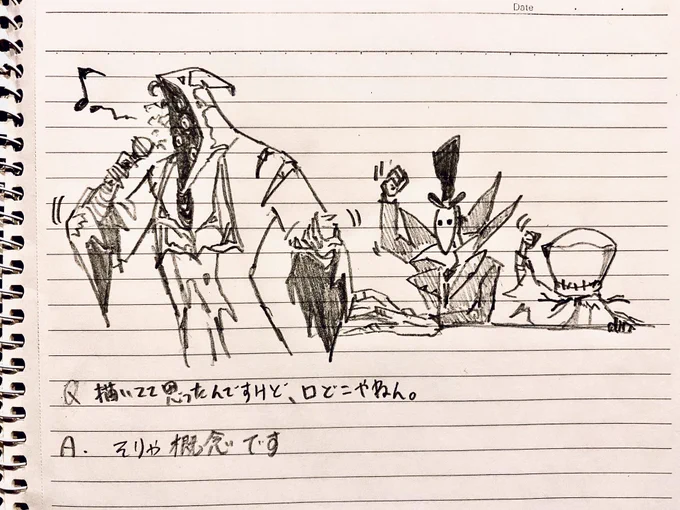 Date
Q 描いてて思ったんですけど、口どこやねん。
A. そりゃ概念です